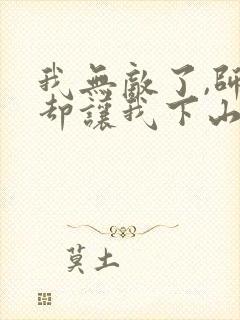 我無敵了,師
却讓我下山
莫土